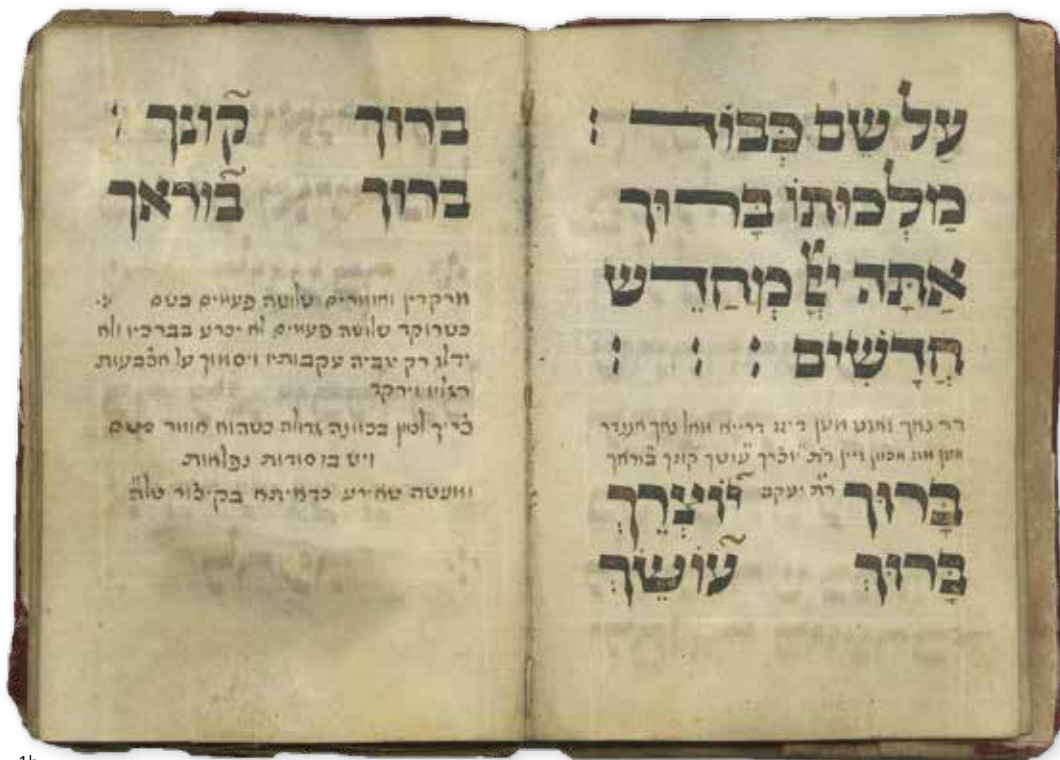 עַל שֵׁם כְּבוֹד :
מַלְכוּתוֹ בָּרוּךְ
אַתָּה יְיָ מְחַדֵּשׁ
חֳדָשִׁים : : :
דר נאך זאגט מען דרייא מאל נאך אננדר
מען מוז מכוון זיין ר״ת יוצרך עושך קונך בוראך
בָּרוּךְ ר״ת יעקב יוֹצְרֵךְ
בָּרוּךְ עוֹשֵׂךְ
ברוך קונך :
ברוך בוראך
מרקדין וחוזרים שלושה פעמים כשם
כשרוקד שלושה פעמים לא יכרע בברכיו ולא
ידלג רק יגביה עקבותיו ויסמוך על אצבעות
רגליו וירקד
צריך לומר בכוונה גדולה כשהוא
ויש בו סודות נפלאות
ומעשה שאירע כדאיתא בקיצור של״ה
1b